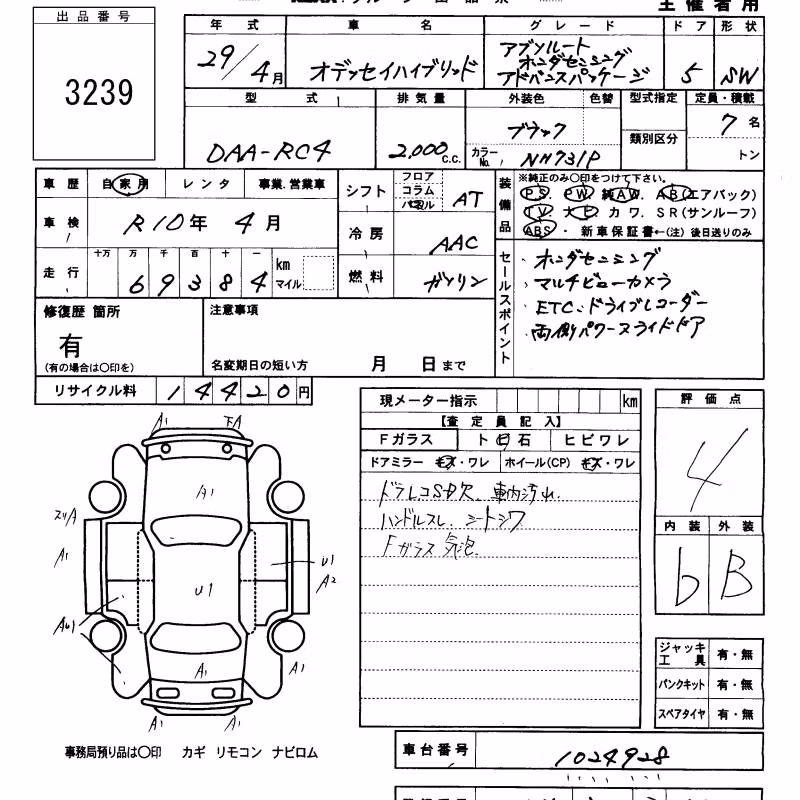 主催者用
出品番号
3239
年式 車名 グレード ドア 形状
29/4月 オデッセイハイブリッド アブソルート ホンダセンシング アドバンスパッケージ 5 SW
型式 排気量 外装色 色替 型式指定 定員・積載
DAA-RC4 2,000c.c. ブラック 類別区分 7名
カラーNo. NH731P トン
車歴 自家用 レンタ 事業.営業車
車検 R10年 4月
走行 十万 万 千 百 十 一
69384 km マイル
シフト フロア コラム パネル AT
冷房 AAC
燃料 ガソリン
装備品
※純正のみ〇印をつけて下さい。
PS. PW. 純AW. AB(エアバック)
TV. ナビ カワ. SR(サンルーフ)
ABS・ 新車保証書←(注) 後日送りのみ
セールスポイント
・ホンダセンシング
・マルチビューカメラ
・ETC・ドライブレコーダー
・両側パワースライドドア
修復歴 箇所
有
(有の場合は〇印を)
注意事項
名変期日の短い方 月 日まで
リサイクル料 14420円
現メーター指示 km
【査定員記入】
Fガラス ト日石 ヒビワレ
ドアミラー キズ・ワレ ホイール(CP) キズ・ワレ
ドラレコSD欠. 車内汚れ
ハンドルスレ. シートシワ
Fガラス気泡.
評価点
4
内装 外装
b B
A1 下A
A1
スリA
A1
U1
A2
U1
AU1
A1
A1
A1 A1
ジャッキ工具 有・無
パンクキット 有・無
スペアタイヤ 有・無
事務局預り品は〇印 カギ リモコン ナビロム
車台番号 1024928